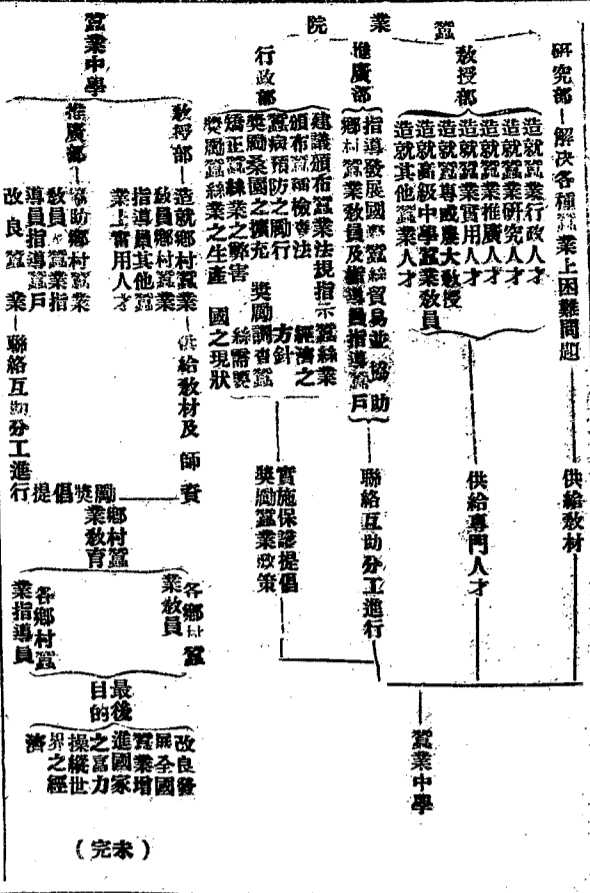 蠶業院
研究部
解决各種蠶業上困難問題
供給敎材
敎授部
造就蠶業行政人才
造就蠶業研究人才
造就蠶業推廣人才
造就蠶業實用人才
造就蠶專或農大敎授
造就高級中學蠶業敎員
造就其他蠶業人才
供給專門人才
推廣部
指導發展國際蠶絲貿易並協助
鄉村蠶業敎員及指導員指導蠶戶
聯絡互助分工進行
行政部
建議頒布蠶業法規指示蠶絲業
經濟之方針
頒布蠶種檢查法
蠶病預防之勵行
獎勵桑園之擴充
獎勵調查蠶絲需要國之現狀
矯正蠶絲業之弊害
獎勵蠶絲業之生產
實施保護提倡
獎勵蠶業政策
蠶業中學
蠶業中學
敎授部
造就鄉村蠶業
敎員鄉村蠶業
指導員其他蠶
業上實用人才
供給敎材及師資
推廣部
協助鄉村蠶業
敎員蠶業指
導員指導蠶戶
改良蠶業
聯絡互助分工進行
獎勵提倡
鄉村蠶
業敎育
各鄉村蠶
業敎員
各鄉村蠶
業指導員
最後
目的
改良發
展全國
蠶業增
進國家
之富力
操縱世
界之經
濟
(未完)